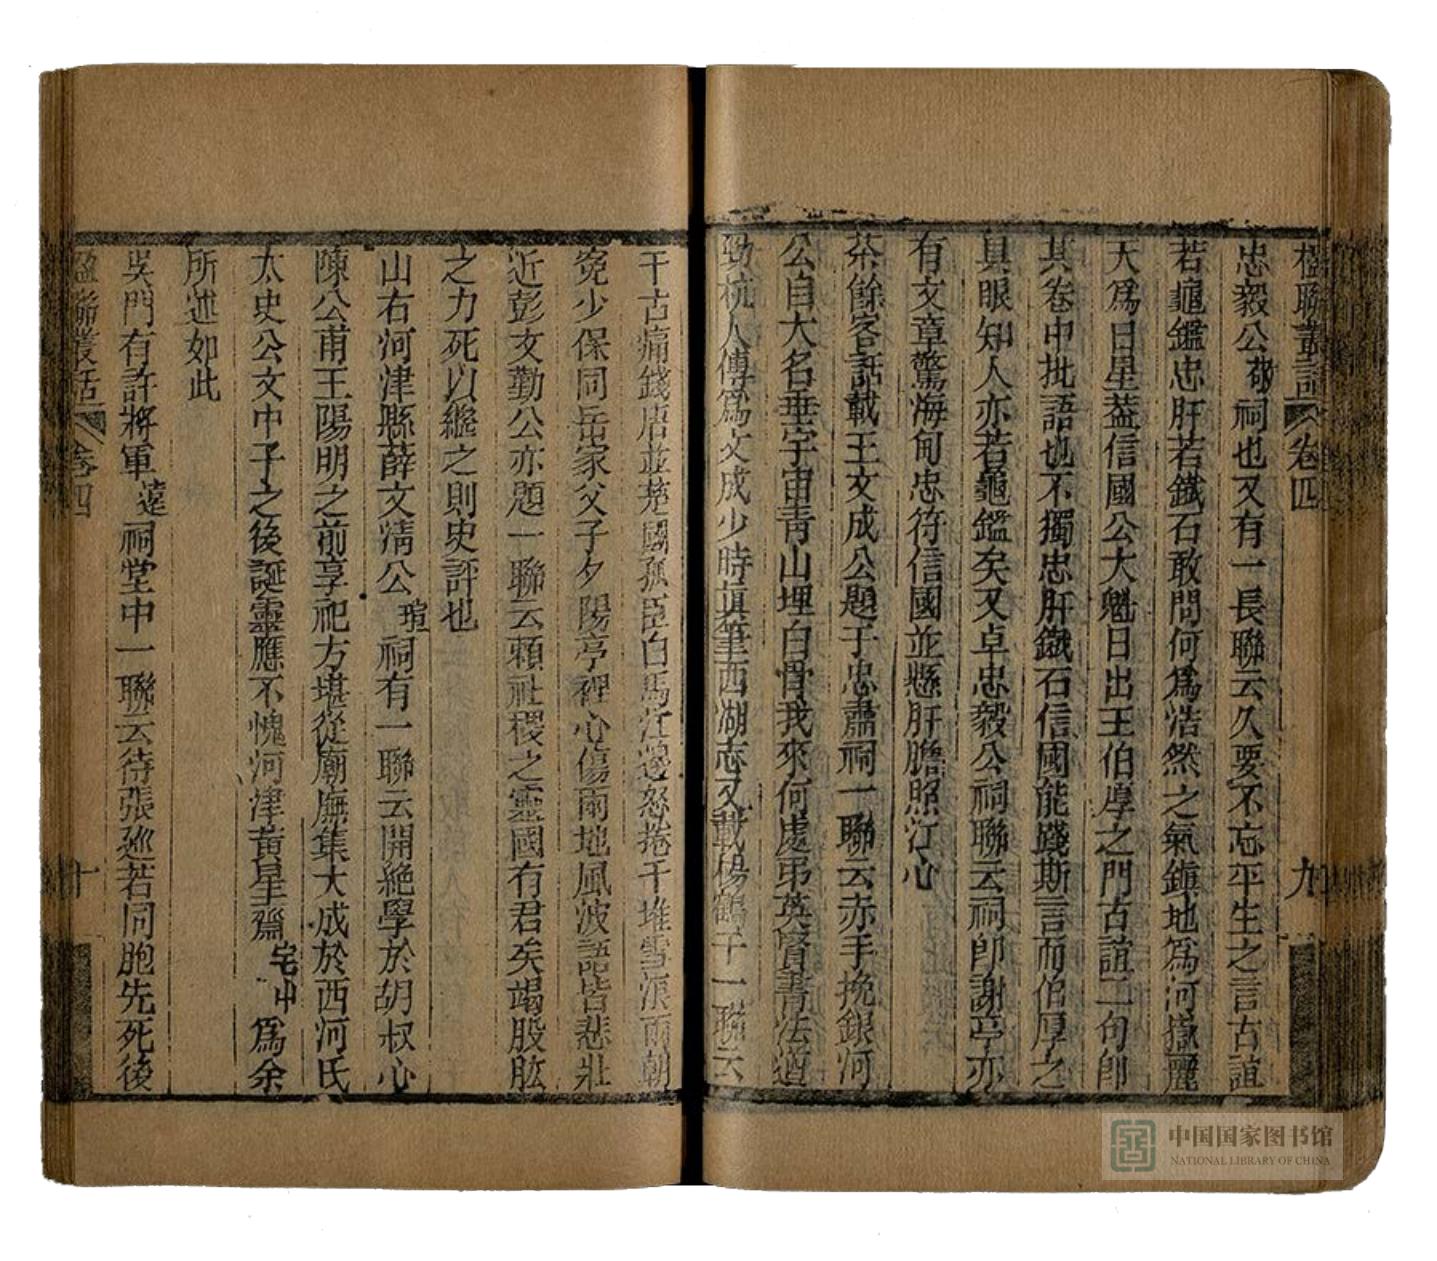 楹聯叢話 卷四 九
忠毅公敬祠也又有一長聯云久要不忘平生之言古誼
若龜鑑忠肝若鐵石敢問何爲浩然之氣鎮地爲河嶽麗
天爲日星葢信國公大魁日出王伯厚之門古誼二句卽
其卷中批語也不獨忠肝鐵石信國能踐斯言而伯厚之
具眼知人亦若龜鑑矣又卓忠毅公祠聯云祠卽謝亭亦
有文章驚海甸忠符信國並懸肝膽照江心
茶餘客話載王文成公題于忠肅祠一聯云赤手挽銀河
公自大名垂宇宙青山埋白骨我來何處弔英賢書法遒
勁杭人傳爲文成少時真筆西湖志又載楊鶴于一聯云
千古痛錢唐並楚國孤臣白馬江邊怒捲千堆雪浪兩朝
冤少保同岳家父子夕陽亭裡心傷兩地風波語皆悲壯
近彭文勤公亦題一聯云賴社稷之靈國有君矣竭股肱
之力死以繼之則史評也
山右河津縣薛文清公瑄祠有一聯云開絶學於胡叔心
陳公甫王陽明之前享祀方堪從廟廡集大成於西河氏
太史公文中子之後誕靈應不愧河津黃星齋宅中爲余
所述如此
吳門有許將軍遠祠堂中一聯云待張廵若同胞先死後
楹聯叢話 卷四 十
中国国家图书馆
NATIONAL LIBRARY OF CHINA